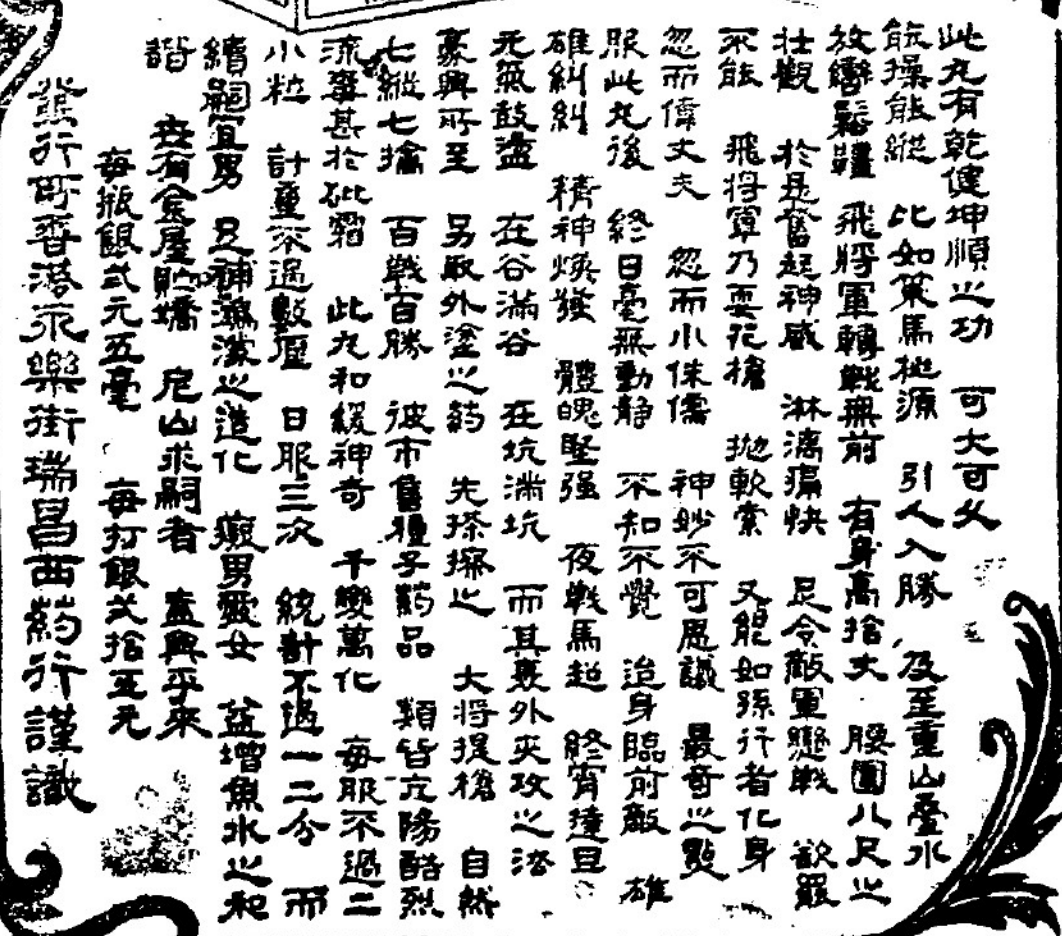 此丸有乾健坤順之功 可大可久
能操能縱 比如策馬桃源 引人入勝 及至重山叠水
放轡鬆韁 飛將軍轉戰無前 有身高拾丈 腰圍八尺之
壯觀 於是奮起神威 淋漓痛快 足令敵軍戀戰 欲罷
不能 飛將軍乃耍花槍 拋軟索 又能如孫行者化身
忽而偉丈夫 忽而小侏儒 神妙不可思議 最奇之點
服此丸後 終日毫無動静 不知不覺 迨身臨前敵 雄
雄糾糾 精神煥發 體魄堅强 夜戰馬超 終宵達旦
元氣鼓盪 在谷滿谷 在坑满坑 而其裏外夾攻之法
豪興所至 另取外塗之药 先搽擦之 大将提槍 自然
七縱七擒 百戰百勝 彼市售種子葯品 類皆亢陽酷烈
流毒甚於砒霜 此丸和緩神奇 千變萬化 每服不過二
小粒 計重不過數厘 日服三次 統計不過一二分 而
續嗣宜男 足補造化 痴男愛女 益增魚水之和
諧 安有金屋貯嬌 尼山求嗣者 盍興乎來
每瓶銀弍元五毫 每打銀弍拾五元
發行所香港永樂街瑞昌西葯行謹識